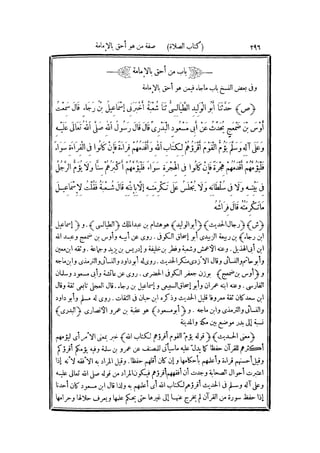 ٢٩٦ (كتاب الصلاة) صفة من هو أحق بالإمامة
باب من أحق بالإمامة
وفى بعض النسخ باب ماجاء فيمن هو أحق بالإمامة
(ص) حَدَّثَنَا أَبُو الْوَلِيدِ الطَّيَالِسِىُّ ثَنَا شُعْبَةُ أَخْبَرَنِى إِسْمَاعِيلُ بْنُ رَجَاءٍ قَالَ سَمِعْتُ
أَوْسَ بْنَ ضَمْعَجٍ يُحَدِّثُ عَنْ أَبِى مَسْعُودٍ الْبَدْرِىِّ قَالَ قَالَ رَسُولُ اللهِ صَلَّى اللهُ تَعَالَى عَلَيْهِ
وَعَلَى آلِهِ وَسَلَّمَ يَؤُمُّ الْقَوْمَ أَقْرَؤُهُمْ لِكِتَابِ اللهِ وَأَقْدَمُهُمْ قِرَاءَةً فَإِنْ كَانُوا فِى الْقِرَاءَةِ سَوَاءً
فَلْيَؤُمَّهُمْ أَقْدَمُهُمْ هِجْرَةً فَإِنْ كَانُوا فِى الْهِجْرَةِ سَوَاءً فَلْيَؤُمَّهُمْ أَكْبَرُهُمْ سِنًّا وَلَا يُؤَمُّ الرَّجُلُ
فِى بَيْتِهِ وَلَا فِى سُلْطَانِهِ وَلَا يُجْلَسُ عَلَى تَكْرِمَتِهِ إِلَّا بِإِذْنِهِ قَالَ شُعْبَةُ فَقُلْتُ لِإِسْمَاعِيلَ
مَا تَكْرِمَتُهُ قَالَ فِرَاشُهُ
(ش) (رجال الحديث) (أبو الوليد) هو هشام بن عبد الملك (الطيالسى). و (إسماعيل
ابن رجاء) بن ربيعة الزبيدى أبو إسحاق الكوفى. روى عن أبيه وأوس بن ضمعج وعبد الله
ابن أبى الهذيل. وعنه الأعمش وشعبة وفطر بن خليفة وإدريس بن يزيد وجماعة. وثقه ابن معين
وأبو حاتم والنسائى وقال الأزدى منكر الحديث. روى له أبو داود والنسائى والترمذى وابن ماجه
و (أوس بن ضمعج) بوزن جعفر الكوفى الحضرمى. روى عن عائشة وأبى مسعود وسلمان
الفارسى. وعنه ابنه عمران وأبو إسحاق السبيعى وإسماعيل بن رجاء. قال العجلى تابعى ثقة وقال
ابن سعد كان ثقة معروفا قليل الحديث وذكره ابن حبان فى الثقات. روى له مسلم وأبو داود
والنسائى والترمذى وابن ماجه. و (أبو مسعود) هو عقبة بن عمرو الأنصارى (البدرى)
نسبة إلى بدر موضع بين مكة والمدينة
(معنى الحديث) (قوله يؤم القوم أقرؤهم لكتاب الله) خبر بمعنى الأمر أى ليؤمهم
أكثرهم للقرآن حفظا كما يدل عليه ما سيأتى للمصنف عن عمرو بن سلمة وفيه يؤمكم أقرؤكم
وقيل أحسنهم قراءة وأعلمهم بأحكامها وإن كان أقلهم حفظا. وقيل المراد به الأفقه لأنه إذا
اعتبرت أحوال الصحابة وجدت أن أفقههم أقرؤهم فيكون المراد من قوله صلى الله تعالى عليه
وعلى آله وسلم فى الحديث أقرؤهم لكتاب الله أى أعلمهم به ولذا قال ابن مسعود كان أحدنا
إذا حفظ سورة من القرآن لم يخرج عنها إلى غيرها حتى يحكم علمها ويعرف حلالها وحرامها